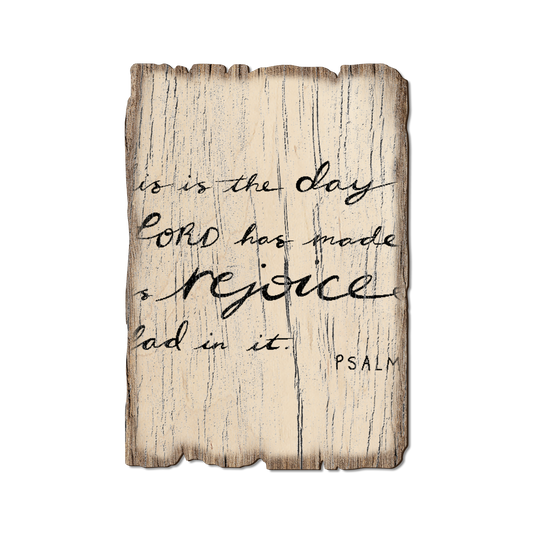 is is the day
LORD has made
s rejoice
lad in it.
PSALM